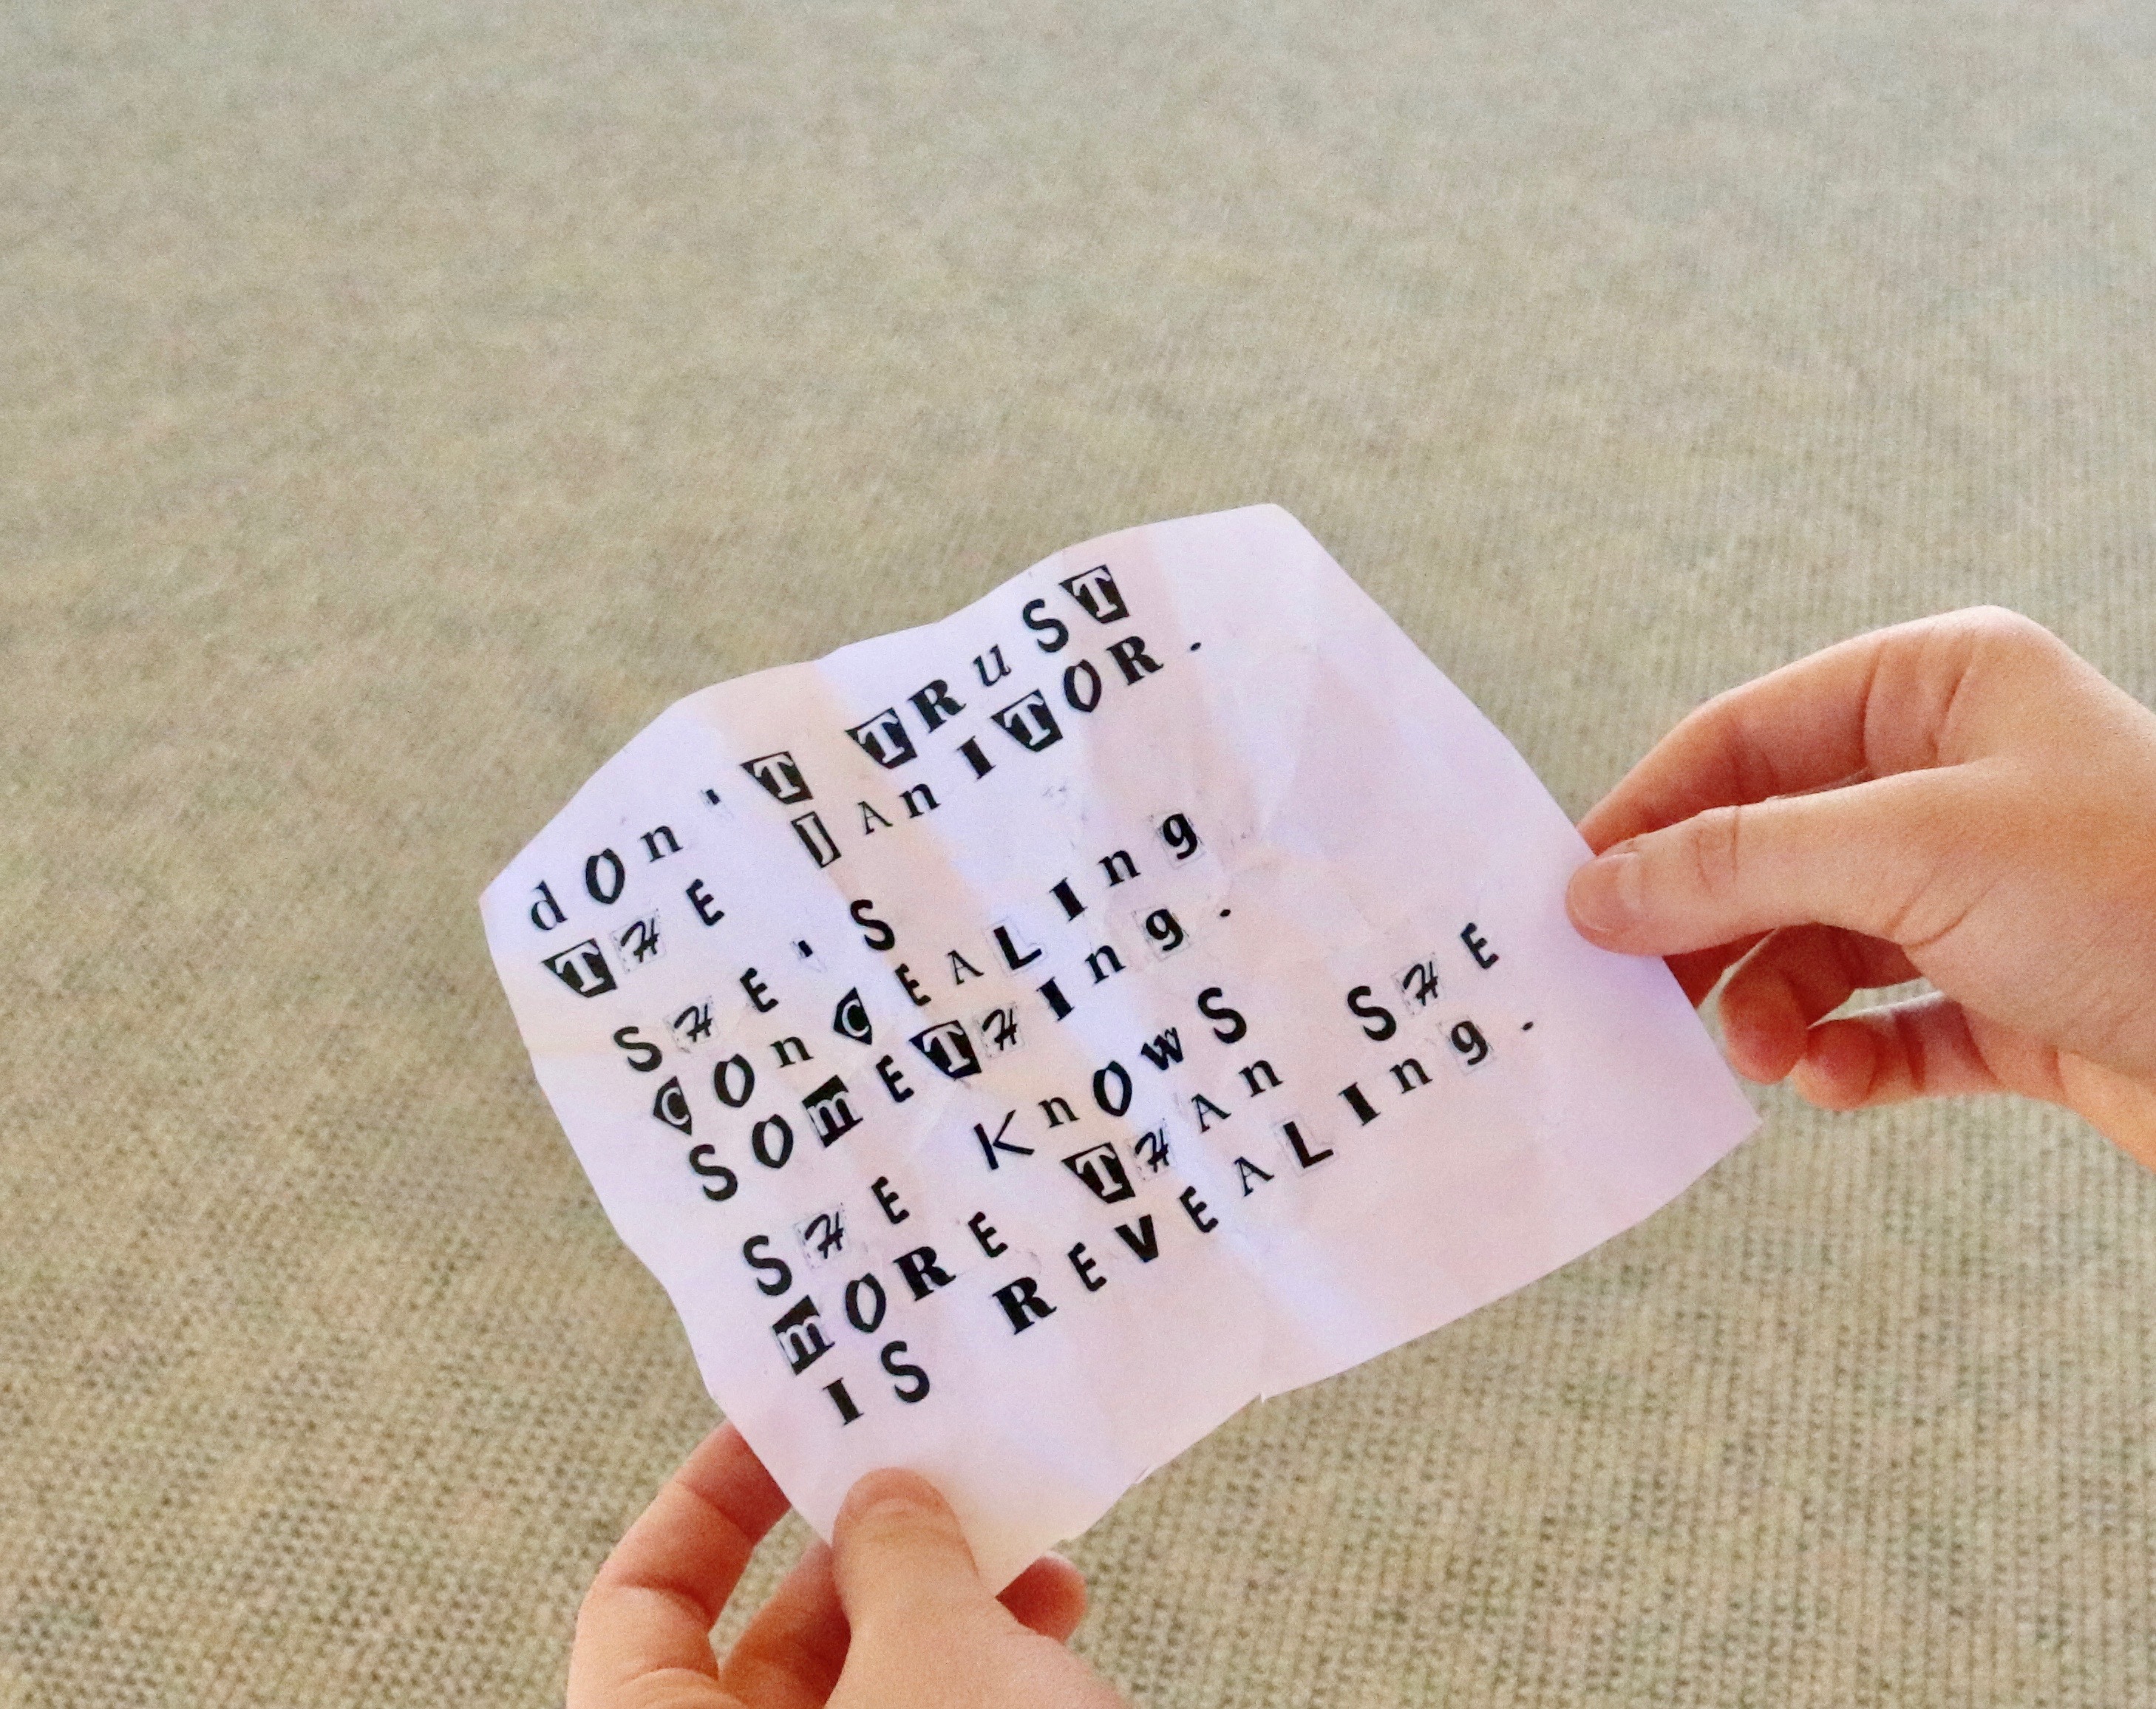 dOn'T TRuST
THE JAnITOR.
SHE'S
COnCEALIng
SOmETHIng.
SHE KnOwS
mORE THAn SHE
IS REVEALIng.